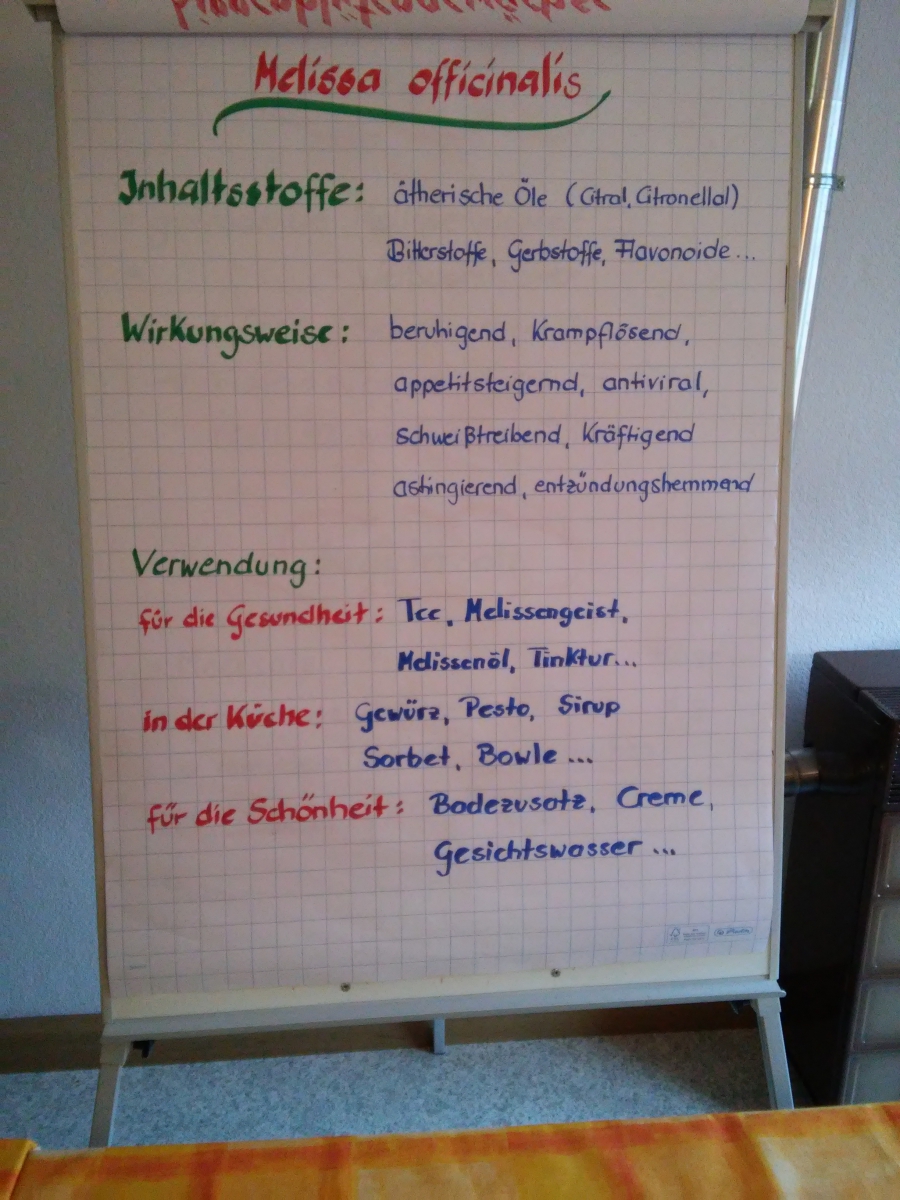 Melissa officinalis
Inhaltsstoffe: ätherische Öle (Citral, Citronellal)
Bitterstoffe, Gerbstoffe, Flavonoide...
Wirkungsweise: beruhigend, Krampflösend,
appetitsteigernd, antiviral,
schweißtreibend, Kräftigend
astringierend, entzündungshemmend
Verwendung:
für die Gesundheit: Tee, Melissengeist,
Melissenöl, Tinktur...
in der Küche: Gewürz, Pesto, Sirup
Sorbet, Bowle ...
für die Schönheit: Badezusatz, Creme,
Gesichtswasser ...